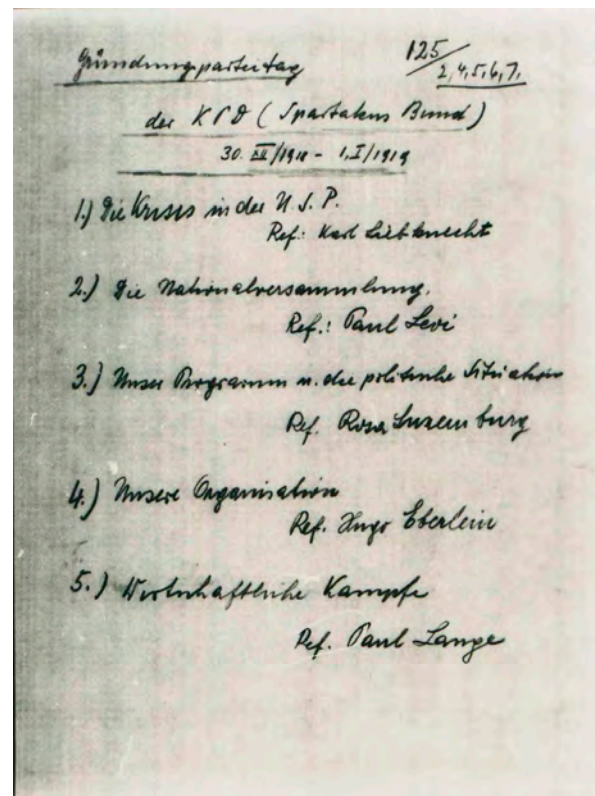 Gründungsparteitag
125/2,4,5,6,7.
der KPD (Spartakus Bund)
30. XII/1918 - 1.I/1919
1.) Die Krisis in der U.S.P.
Ref.: Karl Liebknecht
2.) Die Nationalversammlung.
Ref.: Paul Levi
3.) Unser Programm u. die politische Situation
Ref. Rosa Luxemburg
4.) Unsere Organisation
Ref. Hugo Eberlein
5.) Wirtschaftliche Kämpfe
Ref. Paul Lange